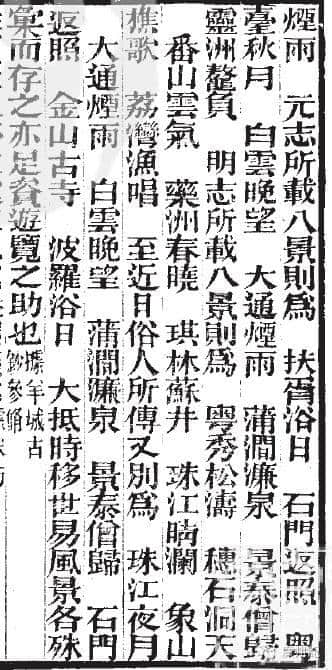 煙雨 元志所載八景則爲 扶胥浴日 石門返照 粵
臺秋月 白雲晚望 大通煙雨 蒲澗濂泉 景泰僧歸
靈洲鼇負 明志所載八景則爲 粵秀松濤 穗石洞天
番山雲氣 藥洲春曉 琪林蘇井 珠江晴瀾 象山
樵歌 荔灣漁唱 至近日俗人所傳又別爲 珠江夜月
大通煙雨 白雲晚望 蒲澗濂泉 景泰僧歸 石門
返照 金山古寺 波羅浴日 大抵時移世易風景各殊
彙而存之亦足資遊覽之助也 據羊城古
鈔參脩